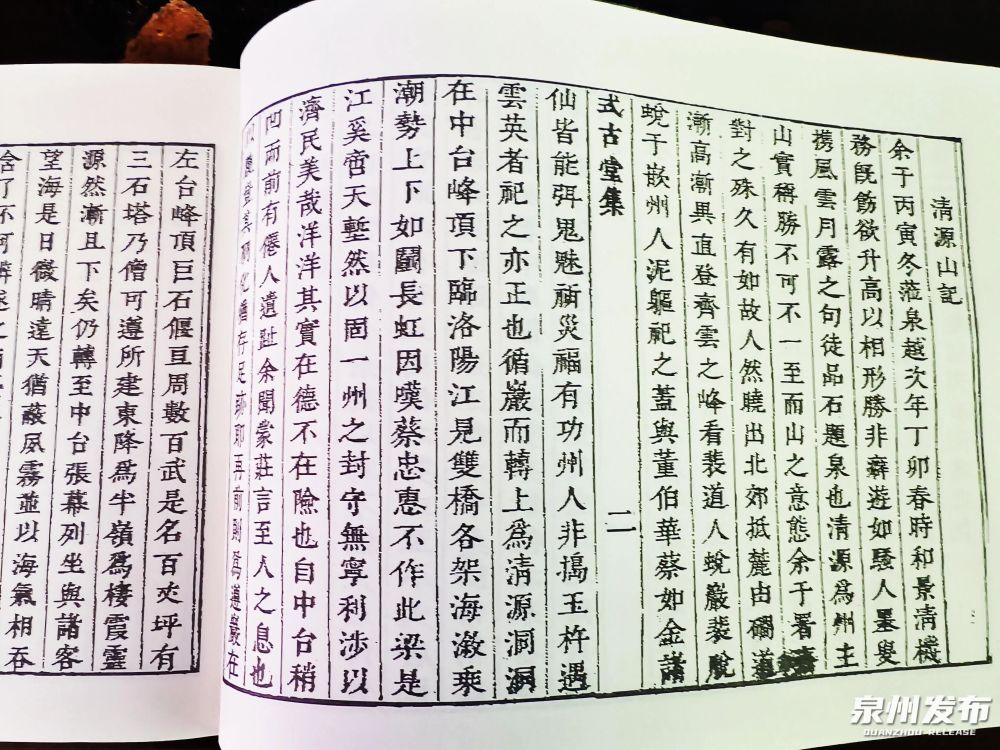 清源山記
余于丙寅冬蒞泉越次年丁卯春時和景清機
務旣飭欲升高以相形勝非癖遊如騷人墨叟
携風雲月露之句徒品石題泉也清源爲州主
山實稱勝不可不一至而山之意態余于署
對之殊久有如故人然曉出北郊抵麓由磵道
漸高漸異直登齊雲之峰看裴道人蛻巖裴蛻
蛻于嵌州人泥軀祀之蓋與董伯華蔡如金諸
式古堂集 二
仙皆能弭鬼魅祈災福有功州人非搗玉杵遇
雲英者祀之亦正也循巖而轉上爲清源洞洞
在中台峰頂下臨洛陽江見雙橋各架海潡乘
潮勢上下如鬬長虹因嘆蔡忠惠不作此梁是
江奚啻天塹然以固一州之封守無寧利涉以
濟民美哉洋洋其實在德不在險也自中台稍
凹而前有僊人遺趾余聞蒙莊言至人之息也
存足跡耶再前則爲遵巖在
左台峰頂巨石偃亘周數百武是名百丈坪有
三石塔乃僧可遵所建東降爲半嶺爲棲霞靈
源然漸且下矣仍轉至中台張幕列坐與諸客
望海是日微晴遠天猶蔽夙霧並以海氣相吞
了不可辨遂之
泉州发布
QUANZHOU RELEASE